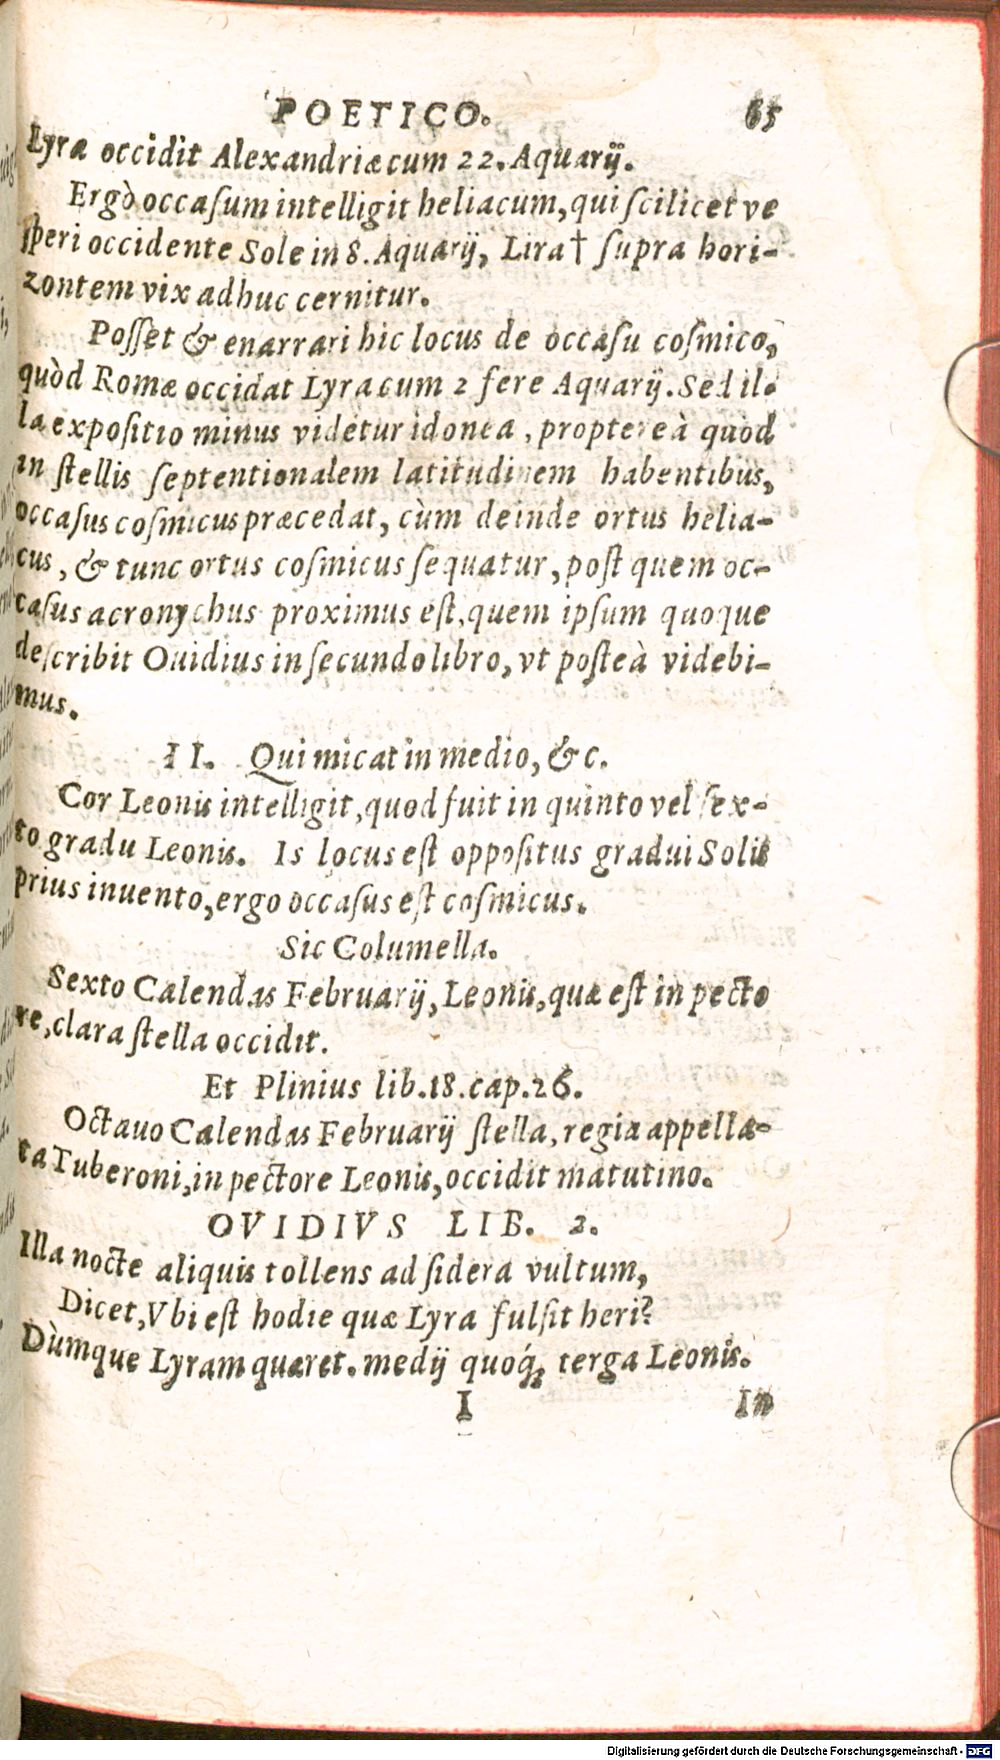 POETICO. 65
Lyræ occidit Alexandriæ cum 22. Aquarij.
Ergò occaſum intelligit heliacum, qui ſcilicet ve
ſperi occidente Sole in 8. Aquarij, Lira† ſupra hori-
zontem vix adhuc cernitur.
Poſſet & enarrari hic locus de occaſu coſmico,
quòd Romæ occidat Lyra cum 2 fere Aquarij. Sed il-
la expoſitio minus videtur idonea, proptereà quòd
in ſtellis ſeptentionalem latitudinem habentibus,
occaſus coſmicus præcedat, cùm deinde ortus helia-
cus, & tunc ortus coſmicus ſequatur, poſt quem oc-
caſus acronychus proximus eſt, quem ipſum quoque
deſcribit Ouidius in ſecundo libro, vt poſteà videbi-
mus.
II. Qui micat in medio, &c.
Cor Leonis intelligit, quod fuit in quinto vel ſex-
to gradu Leonis. Is locus eſt oppoſitus gradui Solis
prius inuento, ergo occaſus eſt coſmicus.
Sic Columella.
Sexto Calendas Februarij, Leonis, quæ eſt in pecto
re, clara ſtella occidit.
Et Plinius lib. 18. cap. 26.
Octauo Calendas Februarij ſtella, regia appella-
ta Tuberoni, in pectore Leonis, occidit matutino.
OVIDIVS LIB. 2.
Illa nocte aliquis tollens ad ſidera vultum,
Dicet, Vbi eſt hodie quæ Lyra fulſit heri?
Dùmque Lyram quæret. medij quoq́; terga Leonis.
I In
Digitalisierung gefördert durch die Deutsche Forschungsgemeinschaft - DFG